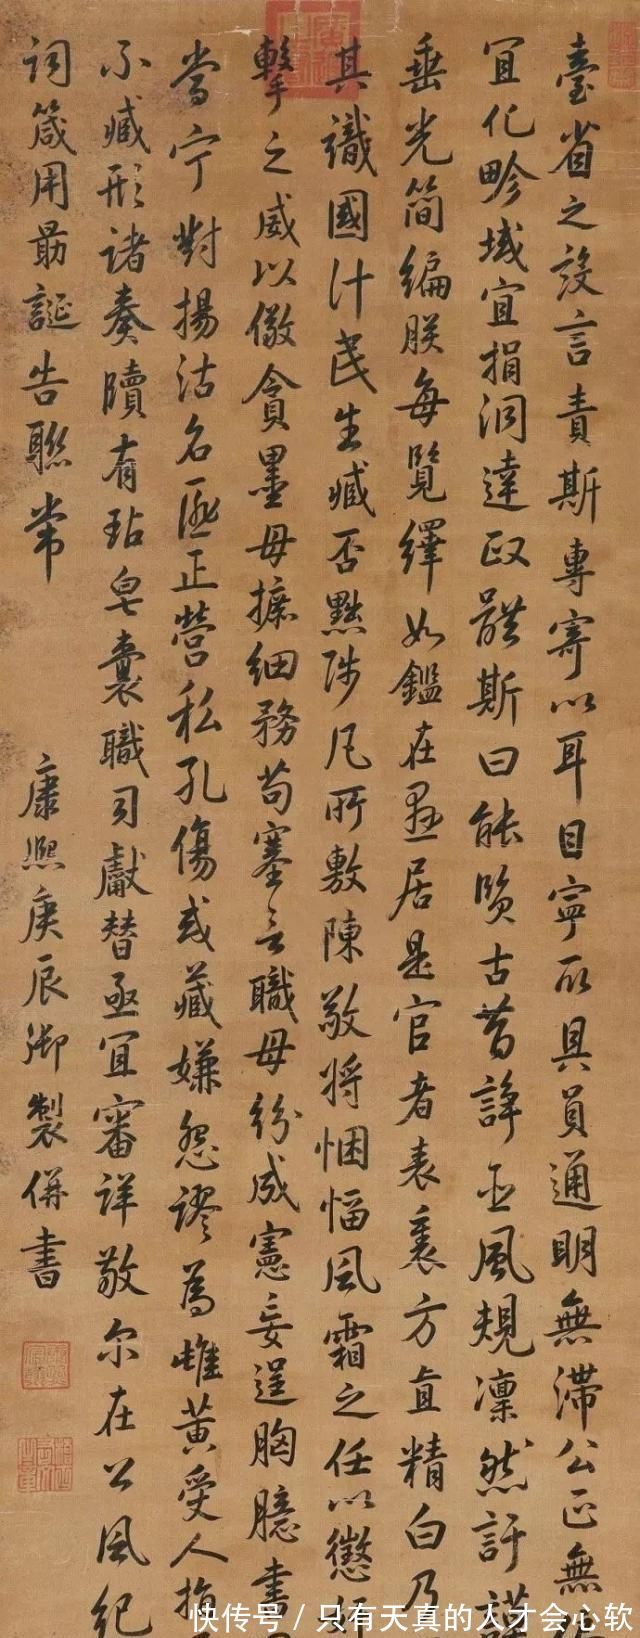 臺省之設言責斯專寄以耳目寧取具員通明無滯公正無
宜化畛域宜捐洞達政體斯曰能賢古昔諍臣風規凜然訏謨
垂光簡編朕每覽繹如鑑在懸居是官者表裏方直精白乃
其識國計民生臧否黜陟凡所敷陳敬將悃愊風霜之任以懲
擊之威以儆貪墨毋摭細務苟塞言職毋紛成憲妄逞胸臆書
當寧對揚沽名匪正營私孔傷或藏嫌怨謬為雌黃受人
不臧形諸奏牘有玷皂囊職司獻替亟宜審詳敬爾在公風紀
詞箴用勗誕告聯常
康熙庚辰御製併書
快传号／只有天真的人才会心软